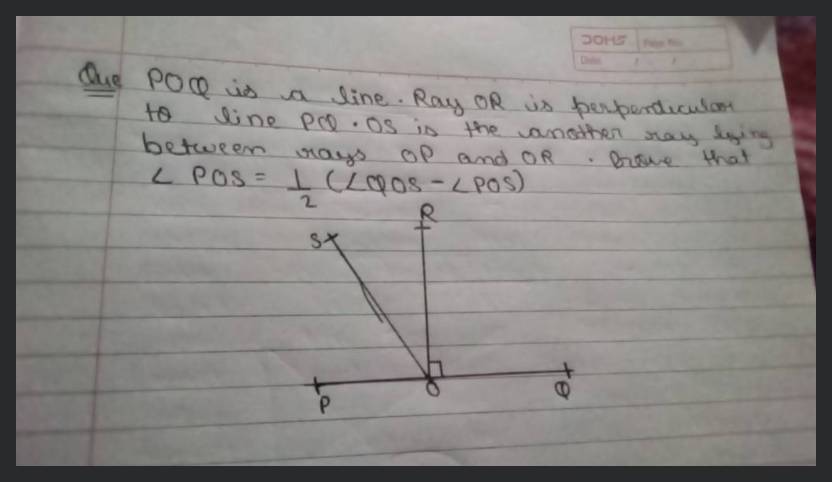 DOMS Page No.
Date / /
Que POQ is a line. Ray OR is perpendicular
to line PQ. OS is the another ray lying
between rays OP and OR. Prove that
∠ POS = 1/2 (∠QOS - ∠POS)
R
S
P O Q